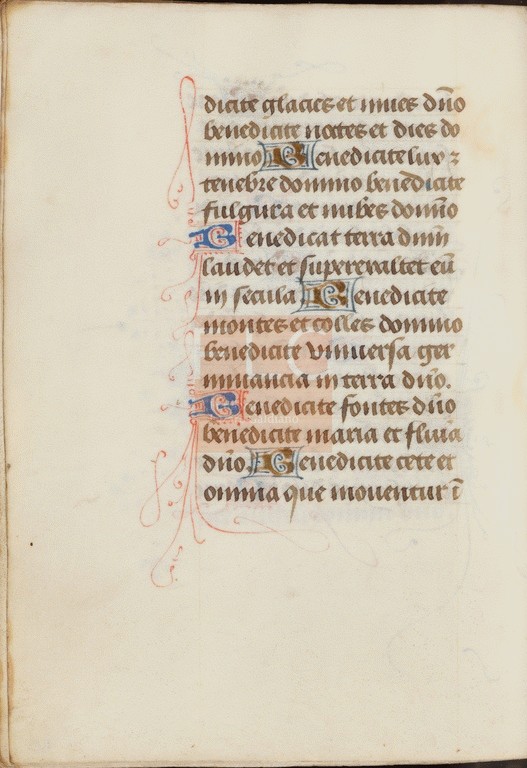 dicite glacies et niues dn̄o
benedicite noctes et dies do
mino Benedicite lux ⁊
tenebre domino benedicite
fulgura et nubes domīo
Benedicat terra dnm̄
laudet et superexaltet eū
in secula Benedicite
montes et colles domino
benedicite vniuersa ger
minancia in terra dn̄o.
Benedicite fontes dn̄o
benedicite maria et fluuia
dn̄o. Benedicite cete et
omnia que mouentur ī